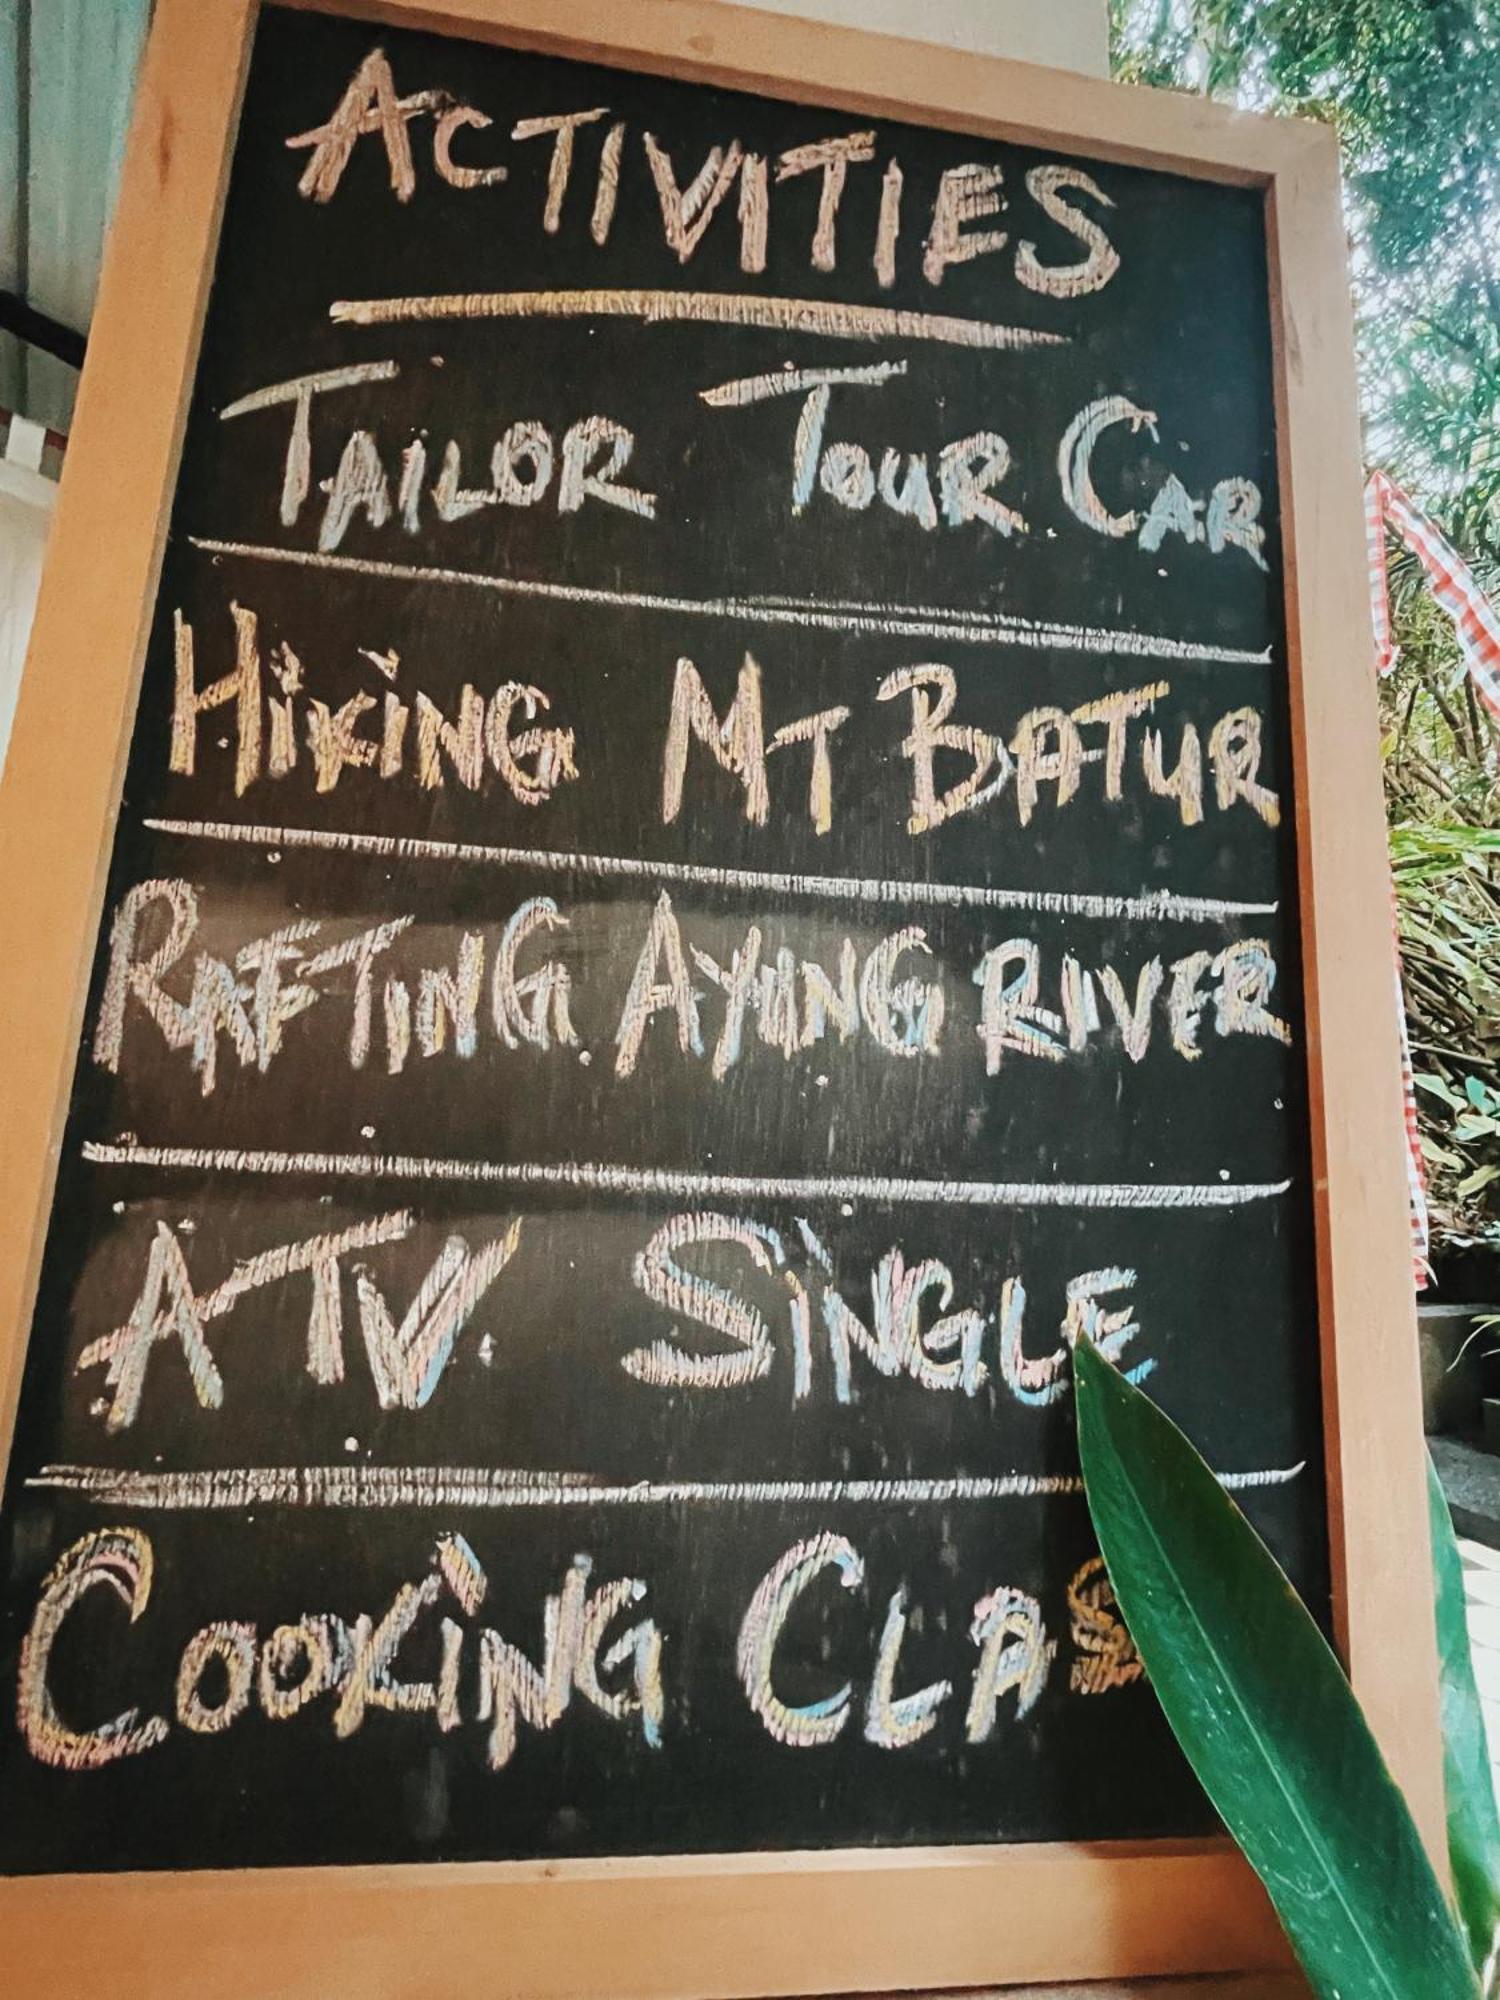 ACTIVITIES
TAILOR TOUR CAR
HiKiNG MT BATUR
RAFTING AYUNG RIVER
ATV SiNGLE
COOKiNG CLAS